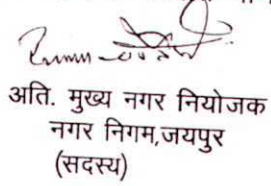 अति. मुख्य नगर नियोजक
नगर निगम,जयपुर
(सदस्य)